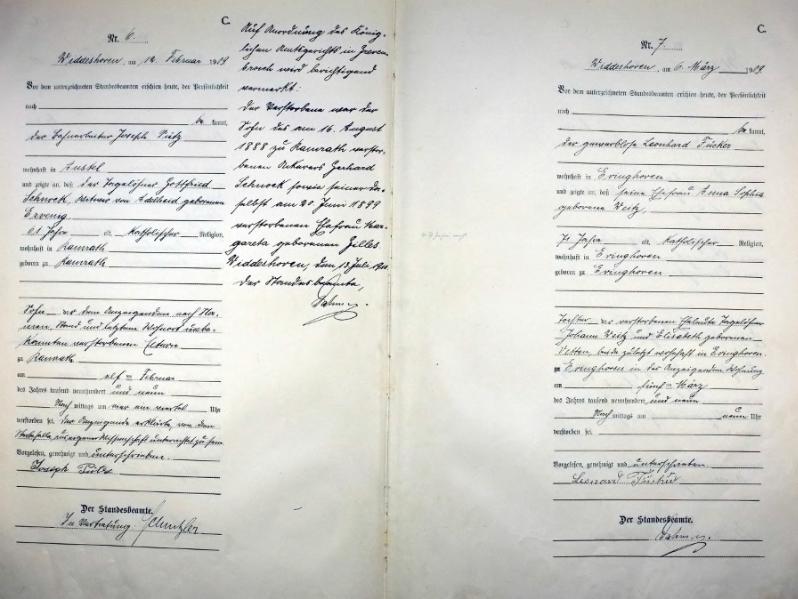 C.
Nr. 6.
Widdeshoven, am 12. Februar 1909
Vor dem unterzeichneten Standesbeamten erschien heute, der Persönlichkeit
nach
be kannt,
der Bahnarbeiter Joseph
wohnhaft in Anstel
und zeigte an, daß der Tagelöhner Gottfried
Schnock, Witwer von Adelheid geborenen
61 Jahre alt, katholischer Religion,
wohnhaft in Ramrath
geboren zu Ramrath
Sohn der dem Anzeigenden nach Na-
men, Stand und letztem Wohnort unbe-
kannten verstorbenen Eltern
zu Ramrath
am elf = Februar
des Jahres tausend neunhundert und neun
Nach mittags um vier ein viertel Uhr
verstorben sei. Der Anzeigende erklärte, von dem
Sterbefalle aus eigener Wissenschaft unterrichtet zu sein.
Vorgelesen, genehmigt und unterschrieben.
Joseph
Der Standesbeamte.
In Vertretung
Auf Anordnung des König-
lichen Amtsgerichts in Greven-
broich wird berichtigend
vermerkt:
Der Verstorbene war der
Sohn des am 16. August
1888 zu Ramrath verstor-
benen Ackerers Gerhard
Schnock sowie seiner da-
selbst am 20 Juni 1899
verstorbenen Ehefrau Mar-
gareta geborenen Zilles
Widdeshoven, den 13. Juli
Der Standesbeamte,
C.
Nr. 7.
Widdeshoven, am 6. März 1909
Vor dem unterzeichneten Standesbeamten erschien heute, der Persönlichkeit
nach
be kannt,
der gewerblose Leonhard Tücker
wohnhaft in Evinghoven
und zeigte an, daß seine Ehefrau Anna Sophia
geborene Weitz,
71 Jahre alt, katholischer Religion,
wohnhaft in Evinghoven
geboren zu Evinghoven
Tochter der verstorbenen Eheleute Tagelöhner
Johann Weitz und Elisabeth geborenen
Velten, beide zuletzt wohnhaft in Evinghoven
zu Evinghoven in der Anzeigenden Wohnung
am fünf = März
des Jahres tausend neunhundert und neun
Nach mittags um neun Uhr
verstorben sei.
Vorgelesen, genehmigt und unterschrieben.
Der Standesbeamte.